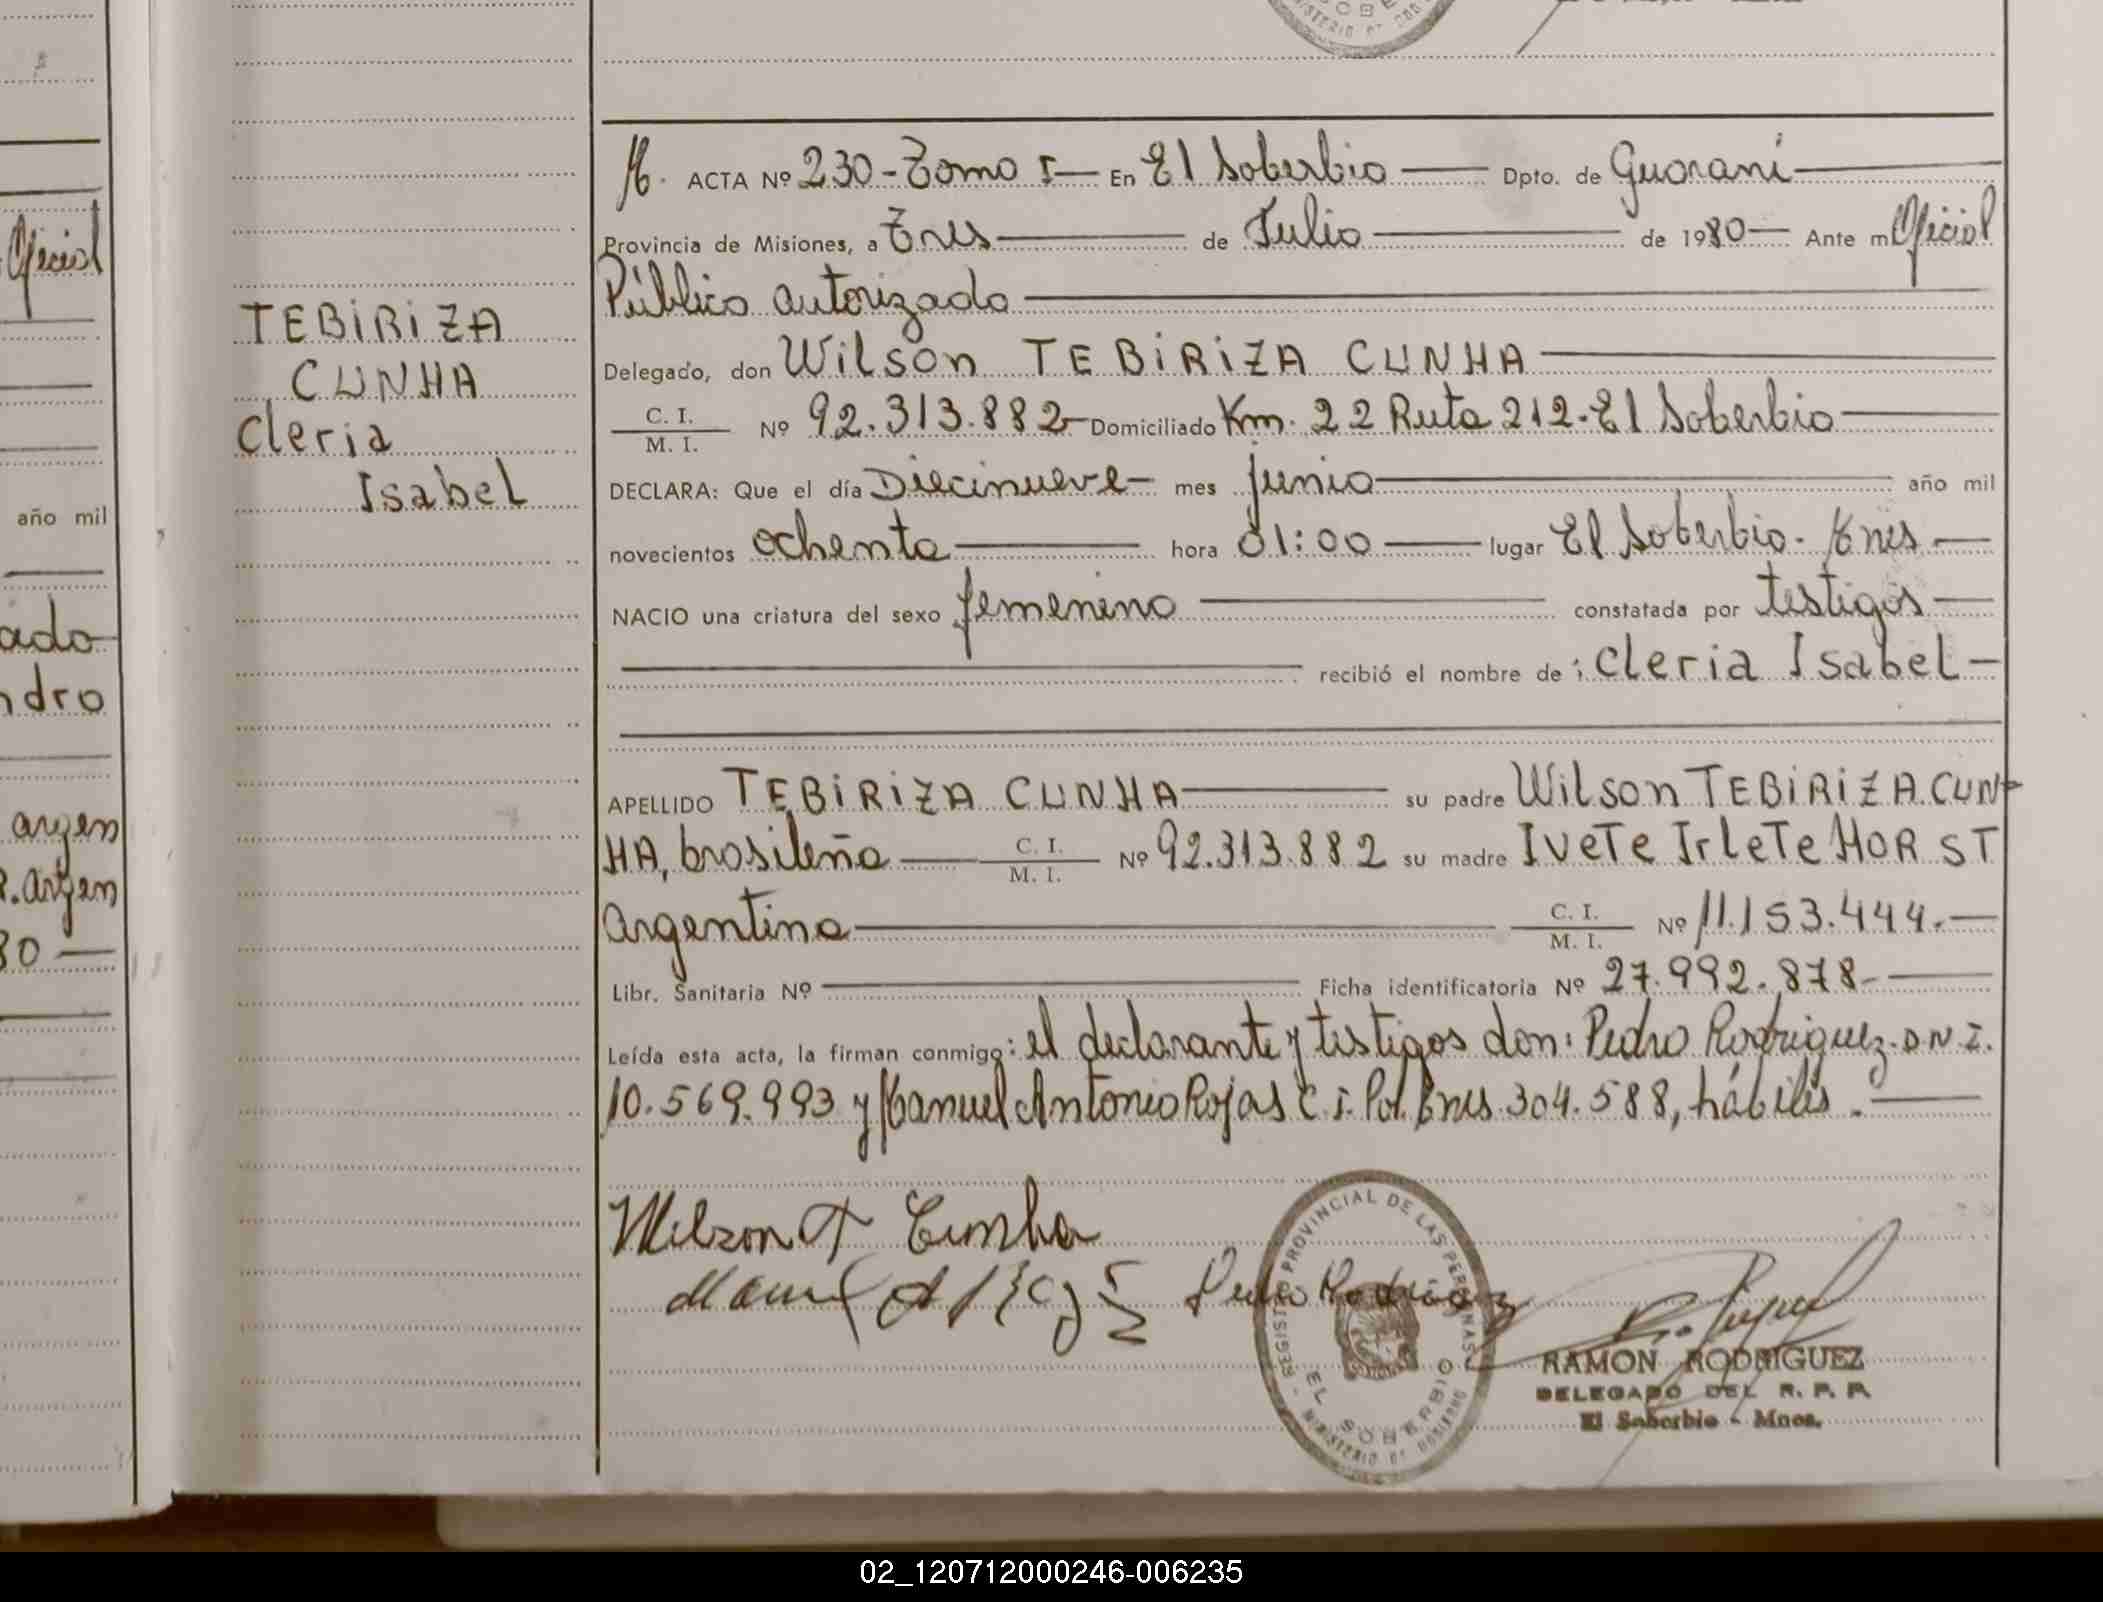 SOBE
MINISTERIO DE GOB
Oficial
año mil
ado
ndro
argen
R. argen
80
TEBIRIZA
CUNHA
Cleria
Isabel
M. ACTA Nº 230 - Tomo I En El Soberbio Dpto. de Guarani
Provincia de Misiones, a Tres de Julio de 1980 Ante mi Oficial
Público autorizado
Delegado, don Wilson TEBIRIZA CUNHA
C. I.
M. I. Nº 92.313.882 Domiciliado Km. 22 Ruta 212 - El Soberbio
DECLARA: Que el día Diecinueve mes junio año mil
novecientos ochenta hora 01:00 lugar El Soberbio - Mnes
NACIO una criatura del sexo femenino constatada por testigos
recibió el nombre de : Cleria Isabel
APELLIDO TEBIRIZA CUNHA su padre Wilson TEBIRIZA CUN-
HA, brasileña C. I. M. I. Nº 92.313.882 su madre IveTe IrLeTe HORST
Argentina C. I. M. I. Nº 11.153.444.
Libr. Sanitaria Nº Ficha identificatoria Nº 27.992.878
Leída esta acta, la firman conmigo: el declarante y testigos don: Pedro Rodriguez. D N I.
10.569.993 y Manuel Antonio Rojas C. I. Pol. Mnes. 304.588, hábiles.
Wilson T Cunha
Pedro Rodriguez
REGISTRO PROVINCIAL DE LAS PERSONAS
EL SOBERBIO
MINISTERIO DE GOBIERNO
RAMON RODRIGUEZ
DELEGADO DEL R. P. P.
El Soberbio - Mnes.
02_120712000246-006235